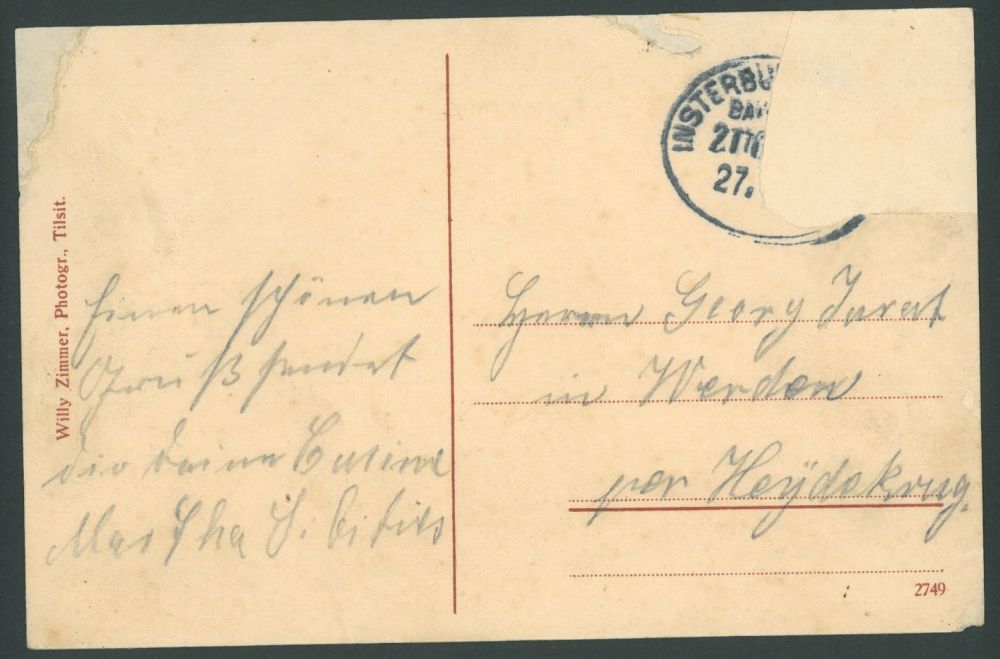 Willy Zimmer, Photogr., Tilsit.
Einen schönen
Gruß sendet
dir deine Cusine
Martha
INSTERBU
BA
27.
Herrn Georg
in Werden
per Heÿdekrug.
2749